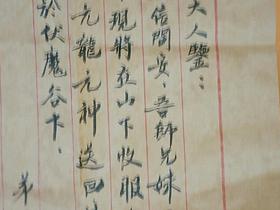 大人鑒：
信閣安，吾師兄妹
現將在山下收服
元龍元神送回
於伏魔谷下，